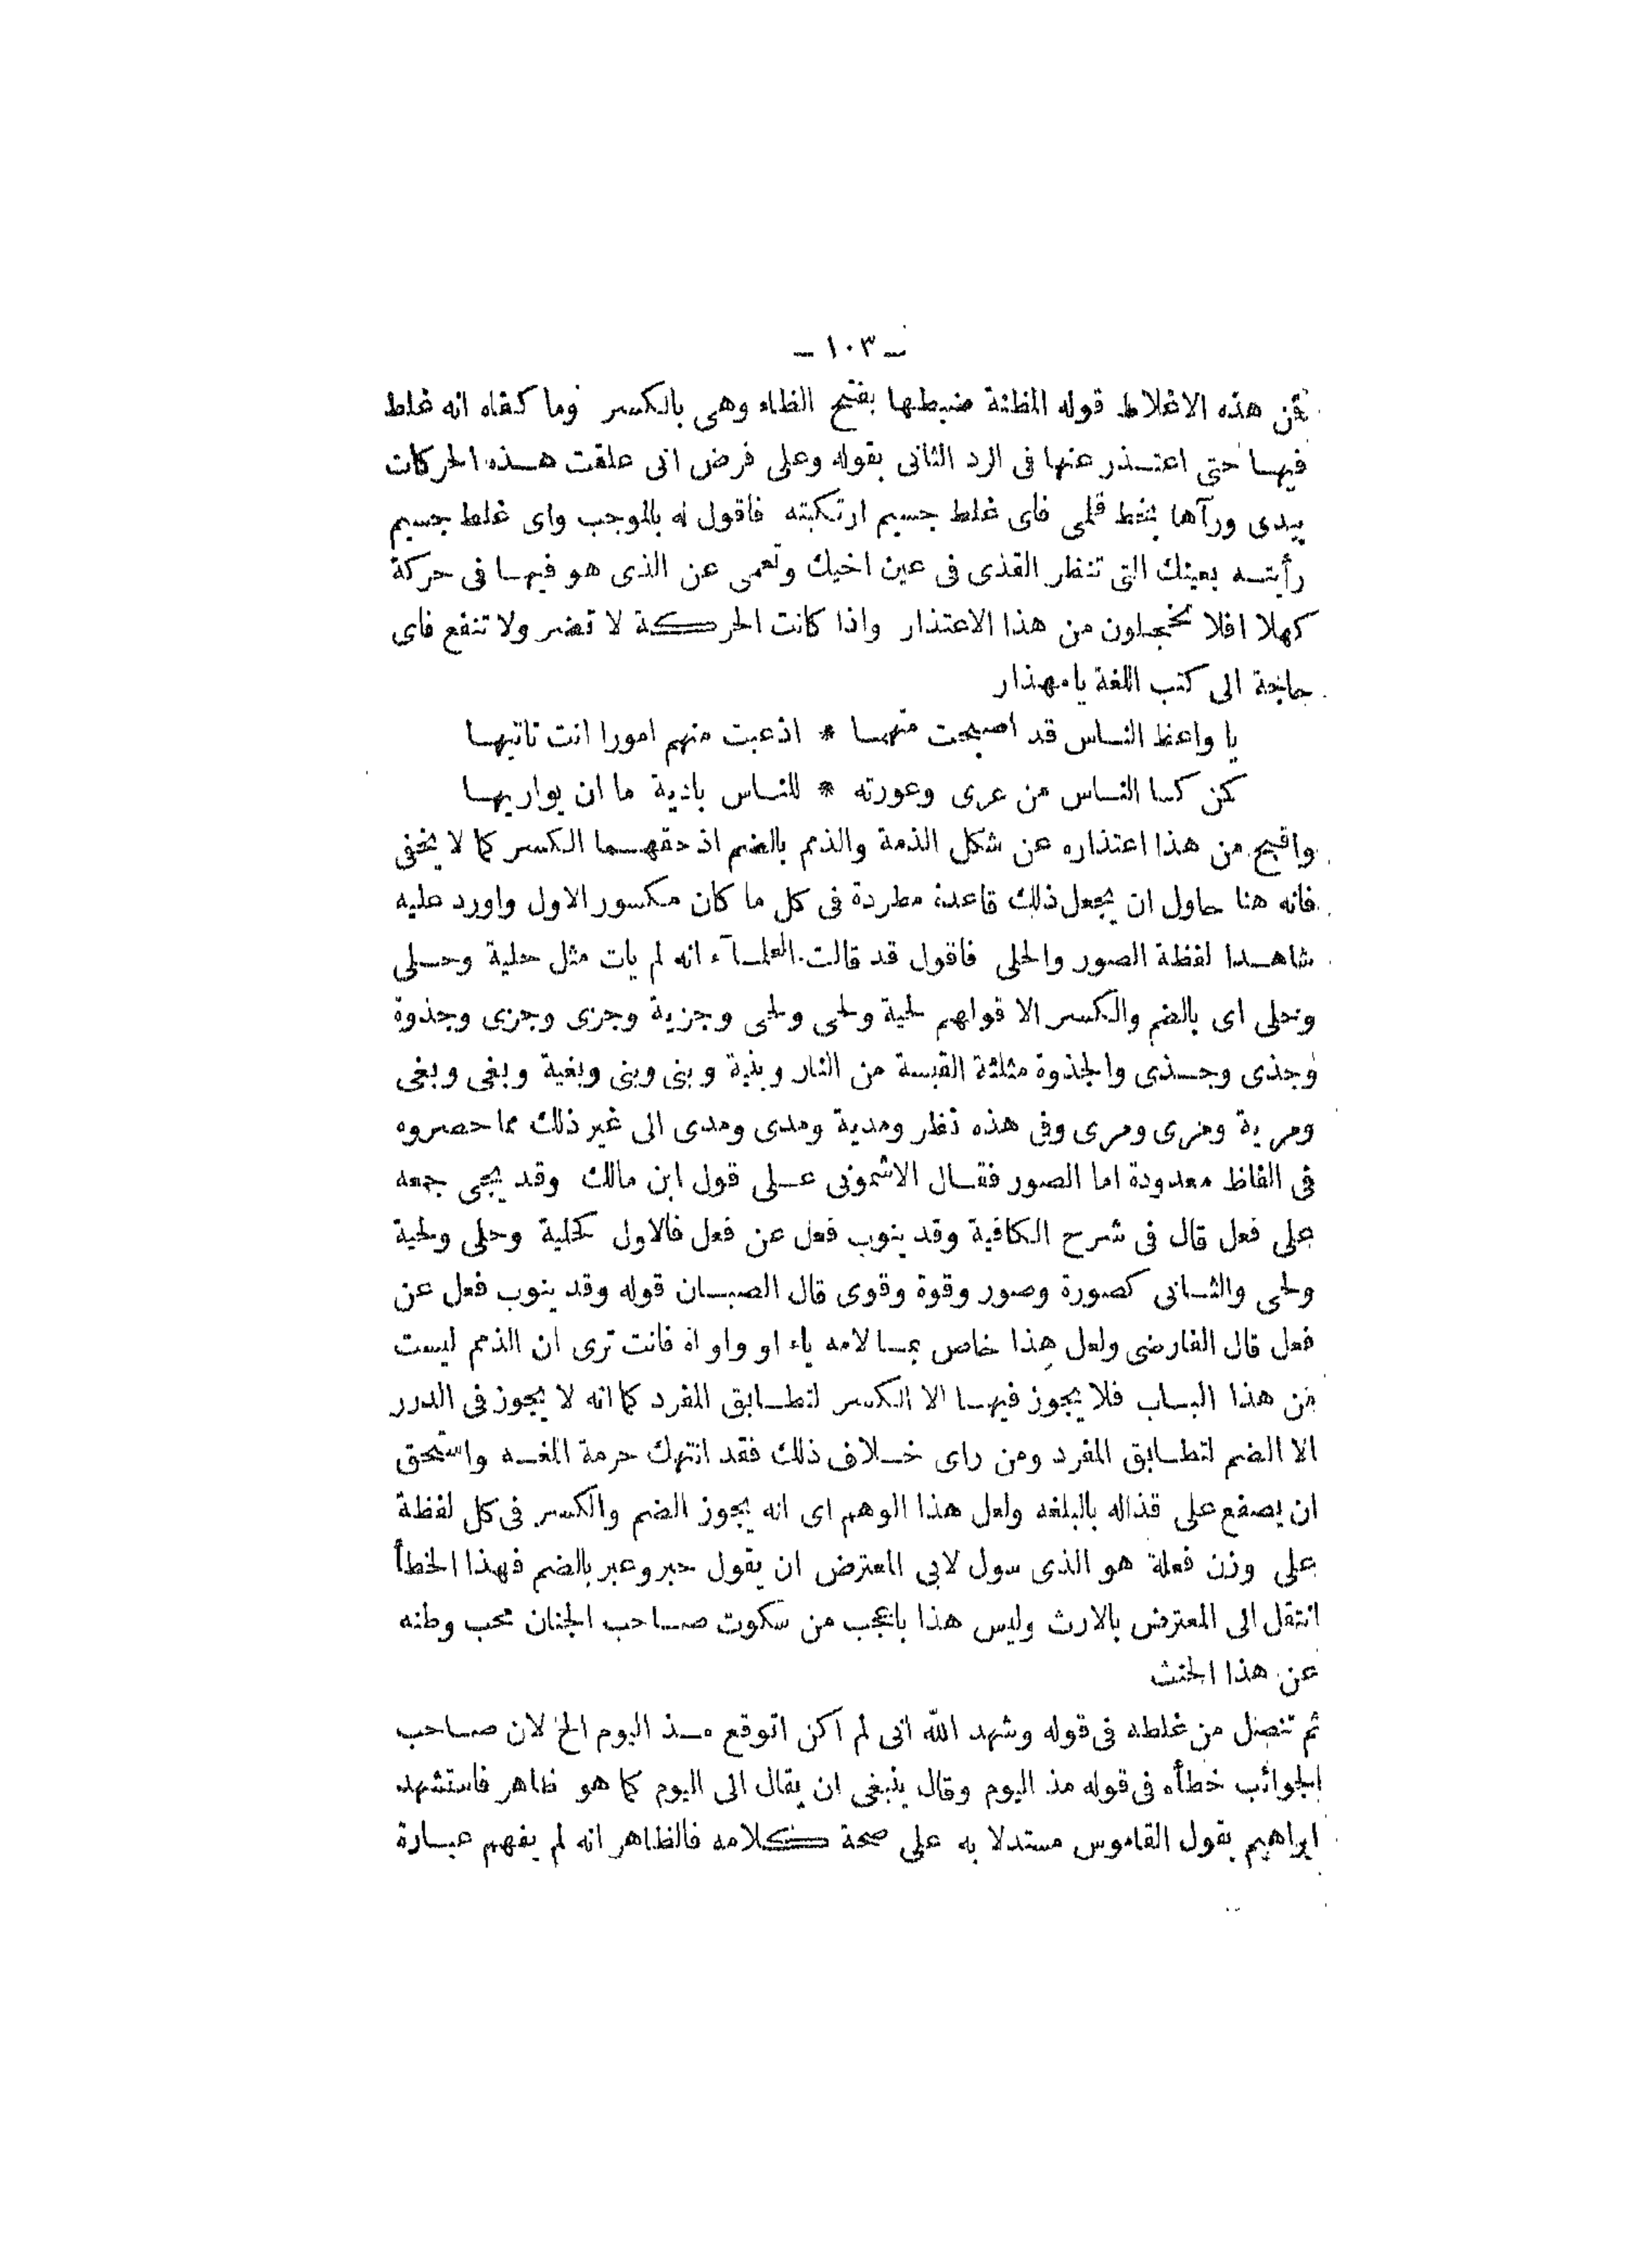 – ١٠٣ –
فمن هذه الاغلاط قوله المظنة ضبطها بفتح الظاء وهى بالكسر وما كفاه انه غلط
فيها حتى اعتذر عنها فى الرد الثانى بقوله وعلى فرض انى علقت هذه الحركات
بيدى ورآها بخط قلمى فاى غلط جسيم ارتكبته فاقول له بالموجب واى غلط جسيم
رأيته بعينك التى تنظر القذى فى عين اخيك وتعمى عن الذى هو فيها فى حركة
كهلا افلا تخجلون من هذا الاعتذار واذا كانت الحركة لا تضر ولا تنفع فاى
حاجة الى كتب اللغة يا مهذار
يا واعظ الناس قد اصبحت متهما * اذ عبت منهم امورا انت تاتيها
كمن كسا الناس من عرى وعورته * للناس بادية ما ان يواريها
واقبح من هذا اعتذاره عن شكل الذمة والذمم بالضم اذ حقهما الكسر كما لا يخفى
فانه هنا حاول ان يجعل ذلك قاعدة مطردة فى كل ما كان مكسور الاول واورد عليه
شاهدا لفظة الصور والحلى فاقول قد قالت العلمآء انه لم يات مثل حلية وحلى
وحلى اى بالضم والكسر الا قولهم لحية ولحى ولحى وجزية وجزى وجزى وجذوة
وجذى وجذى والجذوة مثلثة القبسة من النار وبنية وبنى وبنى وبغية وبغى وبغى
ومرية ومرى ومرى وفى هذه نظر ومدية ومدى ومدى الى غير ذلك مما حصروه
فى الفاظ معدودة اما الصور فقال الاشمونى على قول ابن مالك وقد يجى جمعه
على فعل قال فى شرح الكافية وقد ينوب فعل عن فعل فالاول كحلية وحلى ولحية
ولحى والثانى كصورة وصور وقوة وقوى قال الصبان قوله وقد ينوب فعل عن
فعل قال الفارضى ولعل هذا خاص بما لامه ياء او واو اه فانت ترى ان الذمم ليست
من هذا الباب فلا يجوز فيها الا الكسر لتطابق المفرد كما انه لا يجوز فى الدرر
الا الضم لتطابق المفرد ومن راى خلاف ذلك فقد انتهك حرمة اللغه واستحق
ان يصفع على قذاله بالبلغه ولعل هذا الوهم اى انه يجوز الضم والكسر فى كل لفظة
على وزن فعلة هو الذى سول لابى المعترض ان يقول حبر وعبر بالضم فهذا الخطأ
انتقل الى المعترض بالارث وليس هذا باعجب من سكوت صاحب الجنان محب وطنه
عن هذا الحنث
ثم تنصل من غلطه فى قوله وشهد الله انى لم اكن اتوقع مذ اليوم الخ لان صاحب
الجوائب خطأه فى قوله مذ اليوم وقال ينبغى ان يقال الى اليوم كما هو ظاهر فاستشهد
ابراهيم بقول القاموس مستدلا به على صحة كلامه فالظاهر انه لم يفهم عبارة